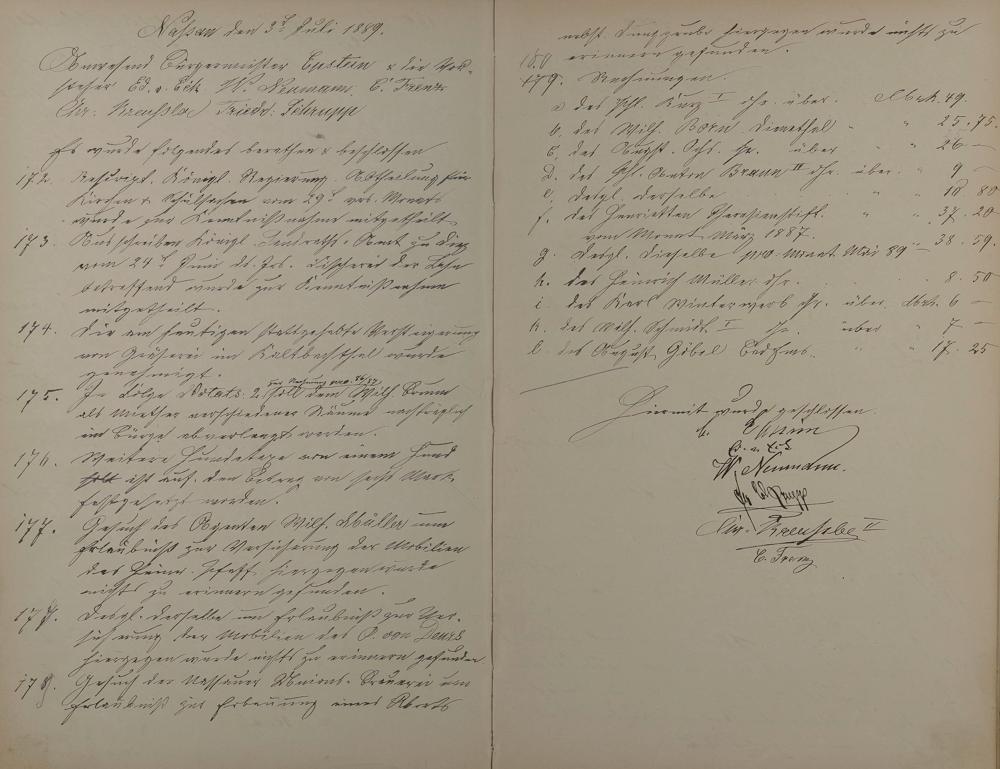 Nassau den 3t Juli 1889.
Anwesend Bürgermeister Epstein & die Vor-
steher Ed. v. Eck. W. Neumann. C. Trenz
Chr. Kreußla Friedr. Schrupp
Es wurde folgendes berathen & beschlossen
172. Rescript. Königl. Regierung Abtheilung für
Kirchen & Schulsachen vom 29t vor. Monats
wurde zur Kenntnißnahme mitgetheilt.
173. Ausschreiben Königl. Landraths-Amt zu Diez
vom 24t Juni ds. Jrs. Fischerei der Lahn
betreffend wurde zur Kenntnißnahme
mitgetheilt.
174. Die am heutigen stattgehabte Versteigerung
von Gräserei im Kaltbachthal wurde
genehmigt.
zur Rechnung pro 86/87
175. In Folge Notats 2. soll dem Wilh.
als Miether verschiedener Räume nachträglich
ein Bürge abverlangt werden.
176. Weitere Hundetaxe von einem Hund
ist auf den Betrag von sechs Mark
festgesetzt worden.
177. Gesuch des Agenten Wilh. Müller um
Erlaubniß zur Versicherung der Mobilien
des Heinr. Pfaff. hiergegen wurde
nichts zu erinnern gefunden.
178. Desgl. derselbe um Erlaubniß zur Ver-
sicherung der Mobilien des
hiergegen wurde nichts zu erinnern gefunden
179. Gesuch der Nassauer Brauerei um
Erlaubniß zur Erbauung eines Aborts
nebst Dunggrube hiergegen wurde nichts zu
erinnern gefunden.
180
179. Rechnungen.
a des Phl. Kurz I hr. über. Mrk. 49.
b. des Wilh. Born Dienethal " " 25.75.
c. des hr. über " " 26 —
d. des Phl. Anton Braun II hr. über. " 9 —
e. desgl. derselbe " " 18 80
f. des Henrietten Theresienstift. " " 37.20
vom Monat März 1887.
g. desgl. dieselbe pro Monat Mai 89 — 38.59.
h. des Heinrich Müller hr. 8.50
i. des Karl Winterwerb hr. über. Mrk. 6 —
k. des Wilh. Schmidt I hr. über " 7 —
l. des August Göbel Bad Ems. " " 17.25
Hiermit wurde geschlossen.
Epstein
E. v. Eck
W. Neumann.
Schrupp
Chr. Kreußla II
C. Trenz